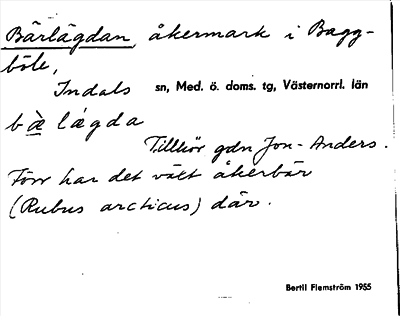 Bärlägdan, åkermark i Bagg-
böle,
Indals sn, Med. ö. doms. tg, Västernorrl. län
bæ̀ lägda
Tillhör gdn Jon-Anders.
Förr har det växt åkerbär
(Rubus arcticus) där.
Bertil Flemström 1955